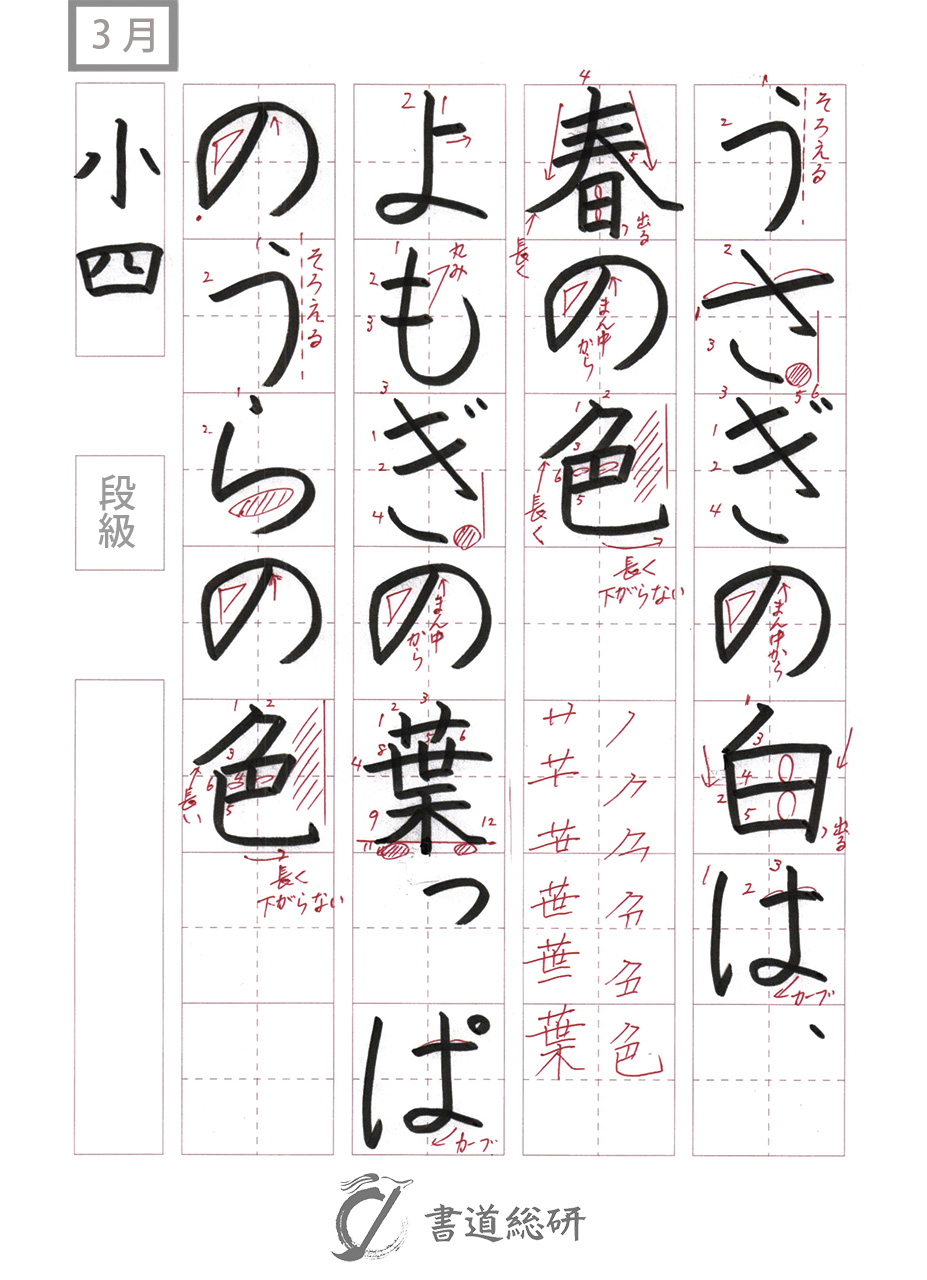 3月
うさぎの白は、
そろえる
まん中から
出る
カーブ
春の色
長く
出る
まん中から
長く
長く
下がらない
よもぎの葉っぱ
丸み
まん中から
カーブ
のうらの色
そろえる
長い
長く
下がらない
小四
段級
書道総研